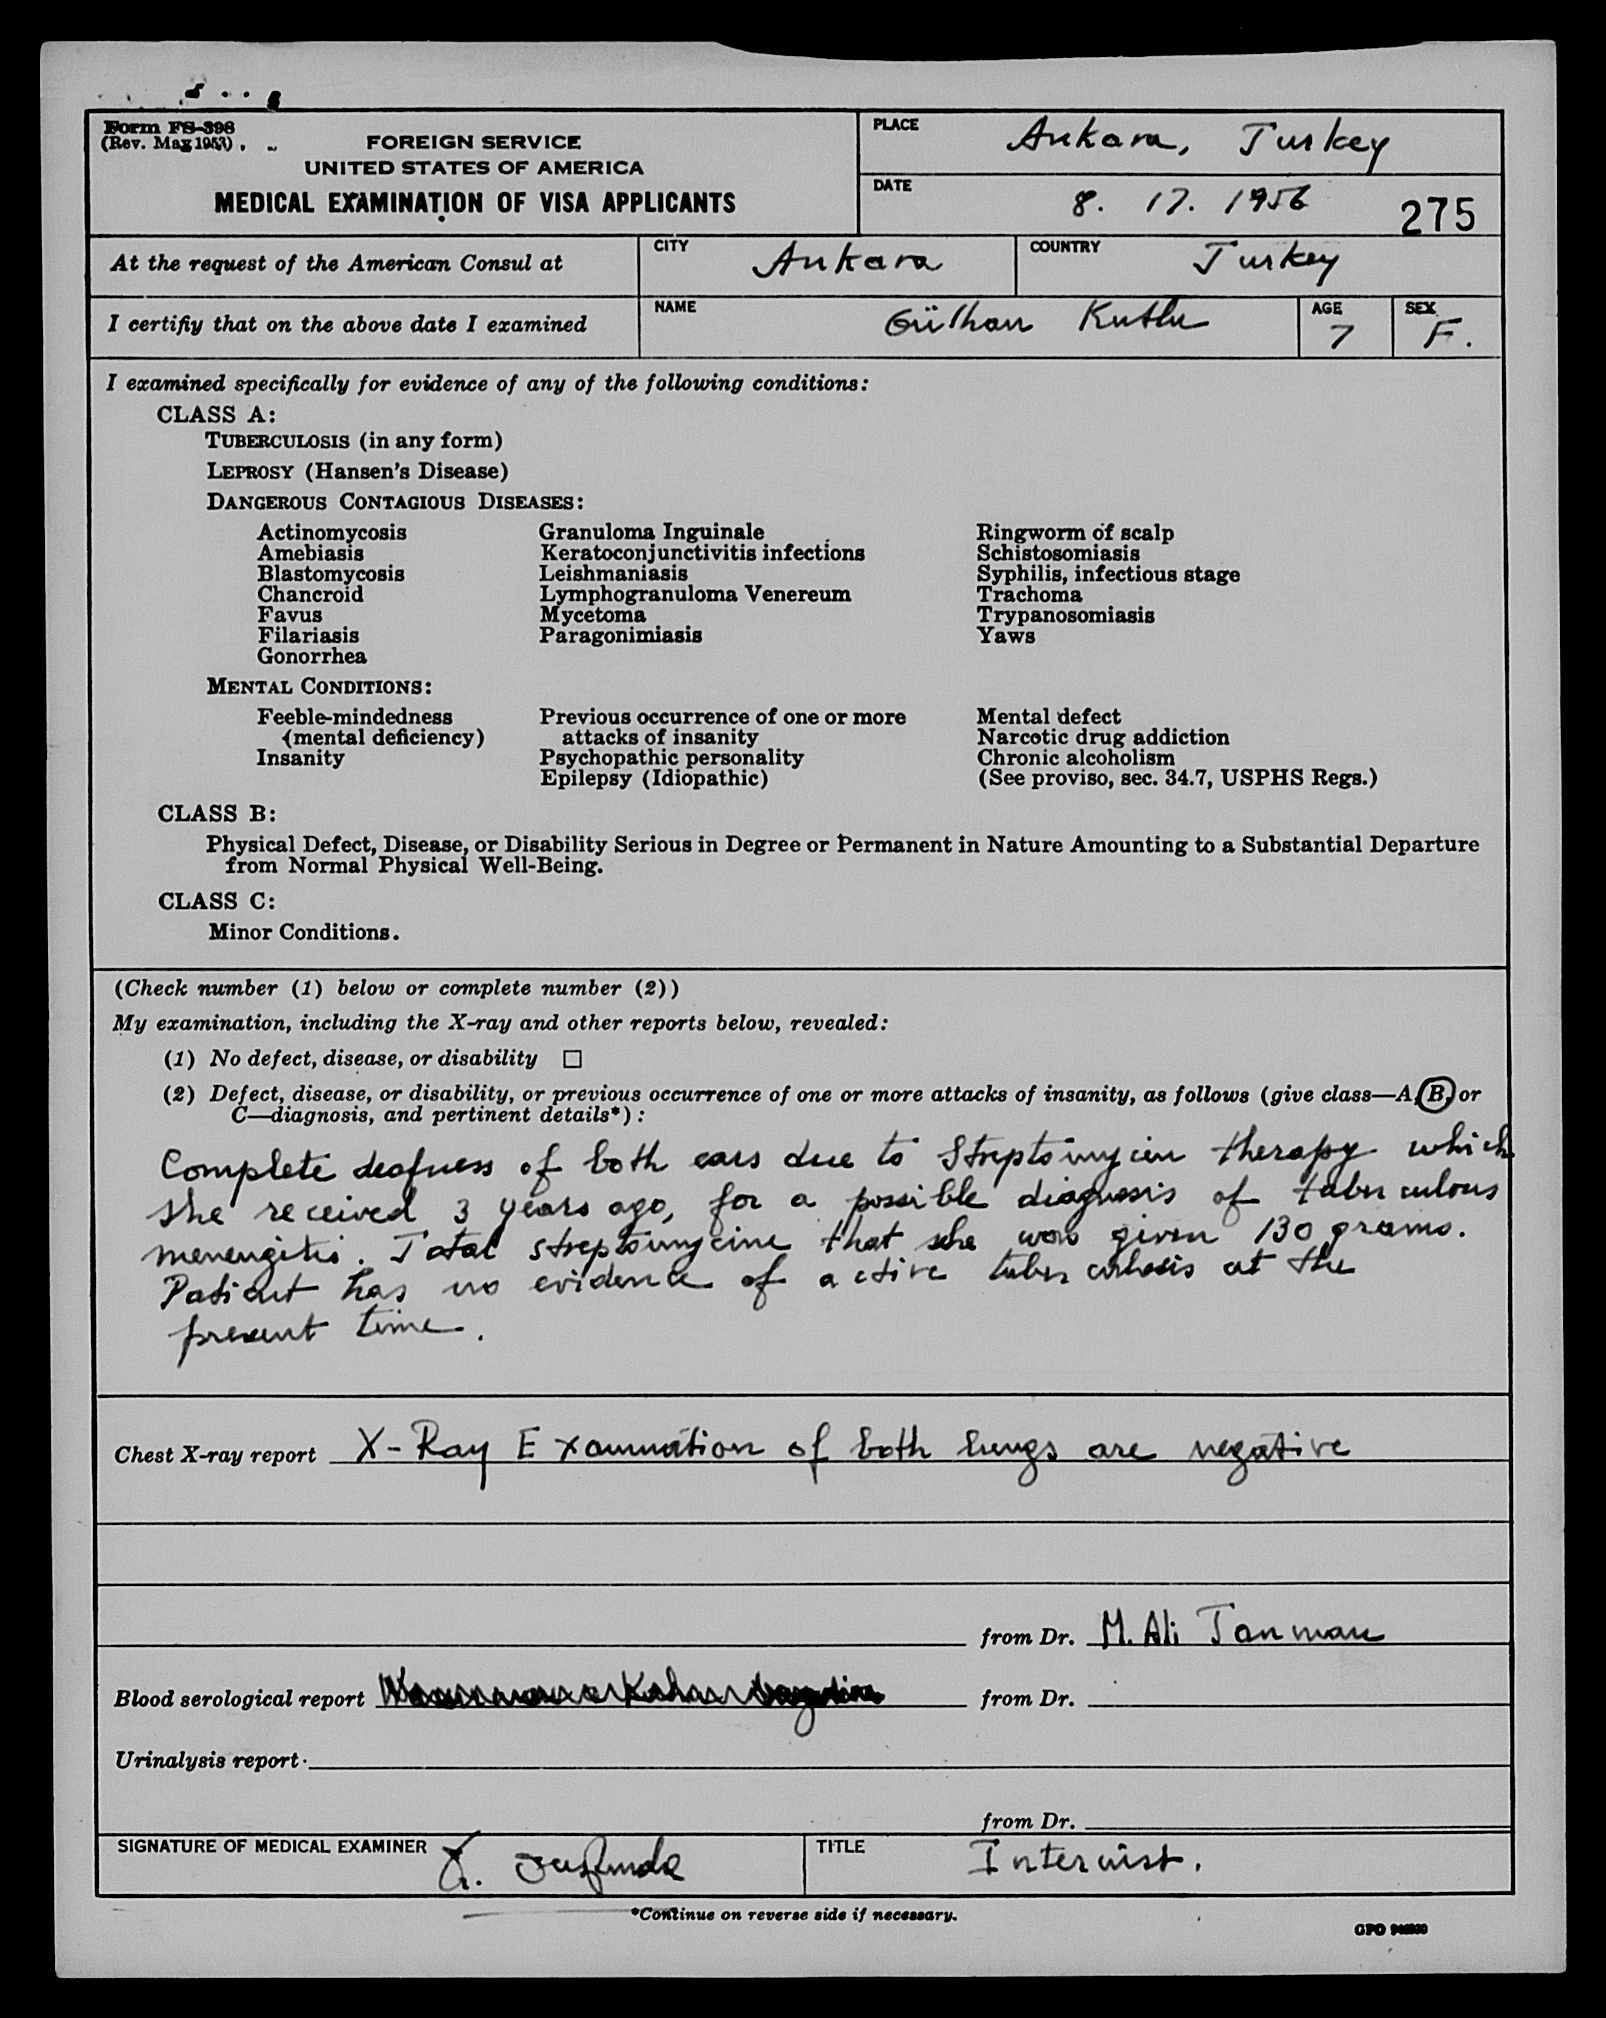 Form FS-398
(Rev. May 1953)
FOREIGN SERVICE
UNITED STATES OF AMERICA
MEDICAL EXAMINATION OF VISA APPLICANTS
PLACE Ankara, Turkey
DATE 8. 17. 1956
275
At the request of the American Consul at
CITY Ankara
COUNTRY Turkey
I certifiy that on the above date I examined
NAME Gülhan Kutlu
AGE 7
SEX F.
I examined specifically for evidence of any of the following conditions:
CLASS A:
TUBERCULOSIS (in any form)
LEPROSY (Hansen's Disease)
DANGEROUS CONTAGIOUS DISEASES:
Actinomycosis Granuloma Inguinale Ringworm of scalp
Amebiasis Keratoconjunctivitis infections Schistosomiasis
Blastomycosis Leishmaniasis Syphilis, infectious stage
Chancroid Lymphogranuloma Venereum Trachoma
Favus Mycetoma Trypanosomiasis
Filariasis Paragonimiasis Yaws
Gonorrhea
MENTAL CONDITIONS:
Feeble-mindedness Previous occurrence of one or more Mental defect
(mental deficiency) attacks of insanity Narcotic drug addiction
Insanity Psychopathic personality Chronic alcoholism
Epilepsy (Idiopathic) (See proviso, sec. 34.7, USPHS Regs.)
CLASS B:
Physical Defect, Disease, or Disability Serious in Degree or Permanent in Nature Amounting to a Substantial Departure
from Normal Physical Well-Being.
CLASS C:
Minor Conditions.
(Check number (1) below or complete number (2))
My examination, including the X-ray and other reports below, revealed:
(1) No defect, disease, or disability ☐
(2) Defect, disease, or disability, or previous occurrence of one or more attacks of insanity, as follows (give class—A, B, or
C—diagnosis, and pertinent details*):
Complete deafness of both ears due to Streptomycin therapy which
she received 3 years ago, for a possible diagnosis of tuberculous
menengitis. Total streptomycine that she was given 130 grams.
Patient has no evidence of active tuberculosis at the
present time.
Chest X-ray report X-Ray Examination of both lungs are negative
from Dr. M. Ali Tanman
Blood serological report from Dr.
Urinalysis report
from Dr.
SIGNATURE OF MEDICAL EXAMINER
TITLE Internist.
*Continue on reverse side if necessary.
GPO